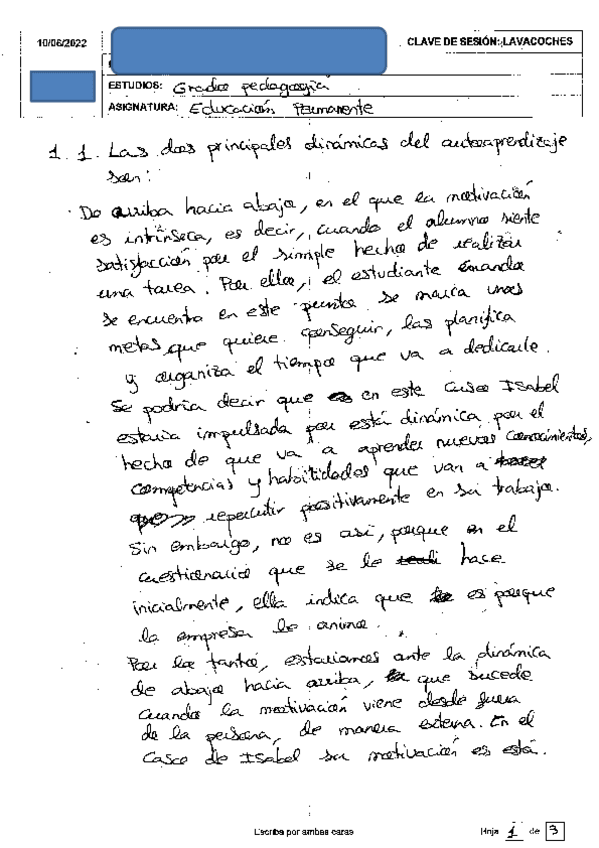 10/06/2022
CLAVE DE SESIÓN: LAVACOCHES
ESTUDIOS: Grado pedagogía
ASIGNATURA: Educación Permanente
1.1. Las dos principales dinámicas del autoaprendizaje
son:
· De arriba hacia abajo, en el que la motivación
es intrínseca, es decir, cuando el alumno siente
satisfacción por el simple hecho de realizar
una tarea. Por ello, el estudiante cuando
se encuentra en este punto se marca unas
metas que quiere conseguir, las planifica
y organiza el tiempo que va a dedicarle.
Se podría decir que en este caso Isabel
estaría impulsada por está dinámica por el
hecho de que va a aprender nuevos conocimientos,
competencias y habilidades que van a
repercutir positivamente en su trabajo.
Sin embargo, no es así, porque en el
cuestionario que se le hace
inicialmente, ella indica que es porque
la empresa le anima.
Por lo tanto, estaríamos ante la dinámica
de abajo hacia arriba, que sucede
cuando la motivación viene desde fuera
de la persona, de manera externa. En el
caso de Isabel su motivación es está.
Escriba por ambas caras
Hoja 1 de 3